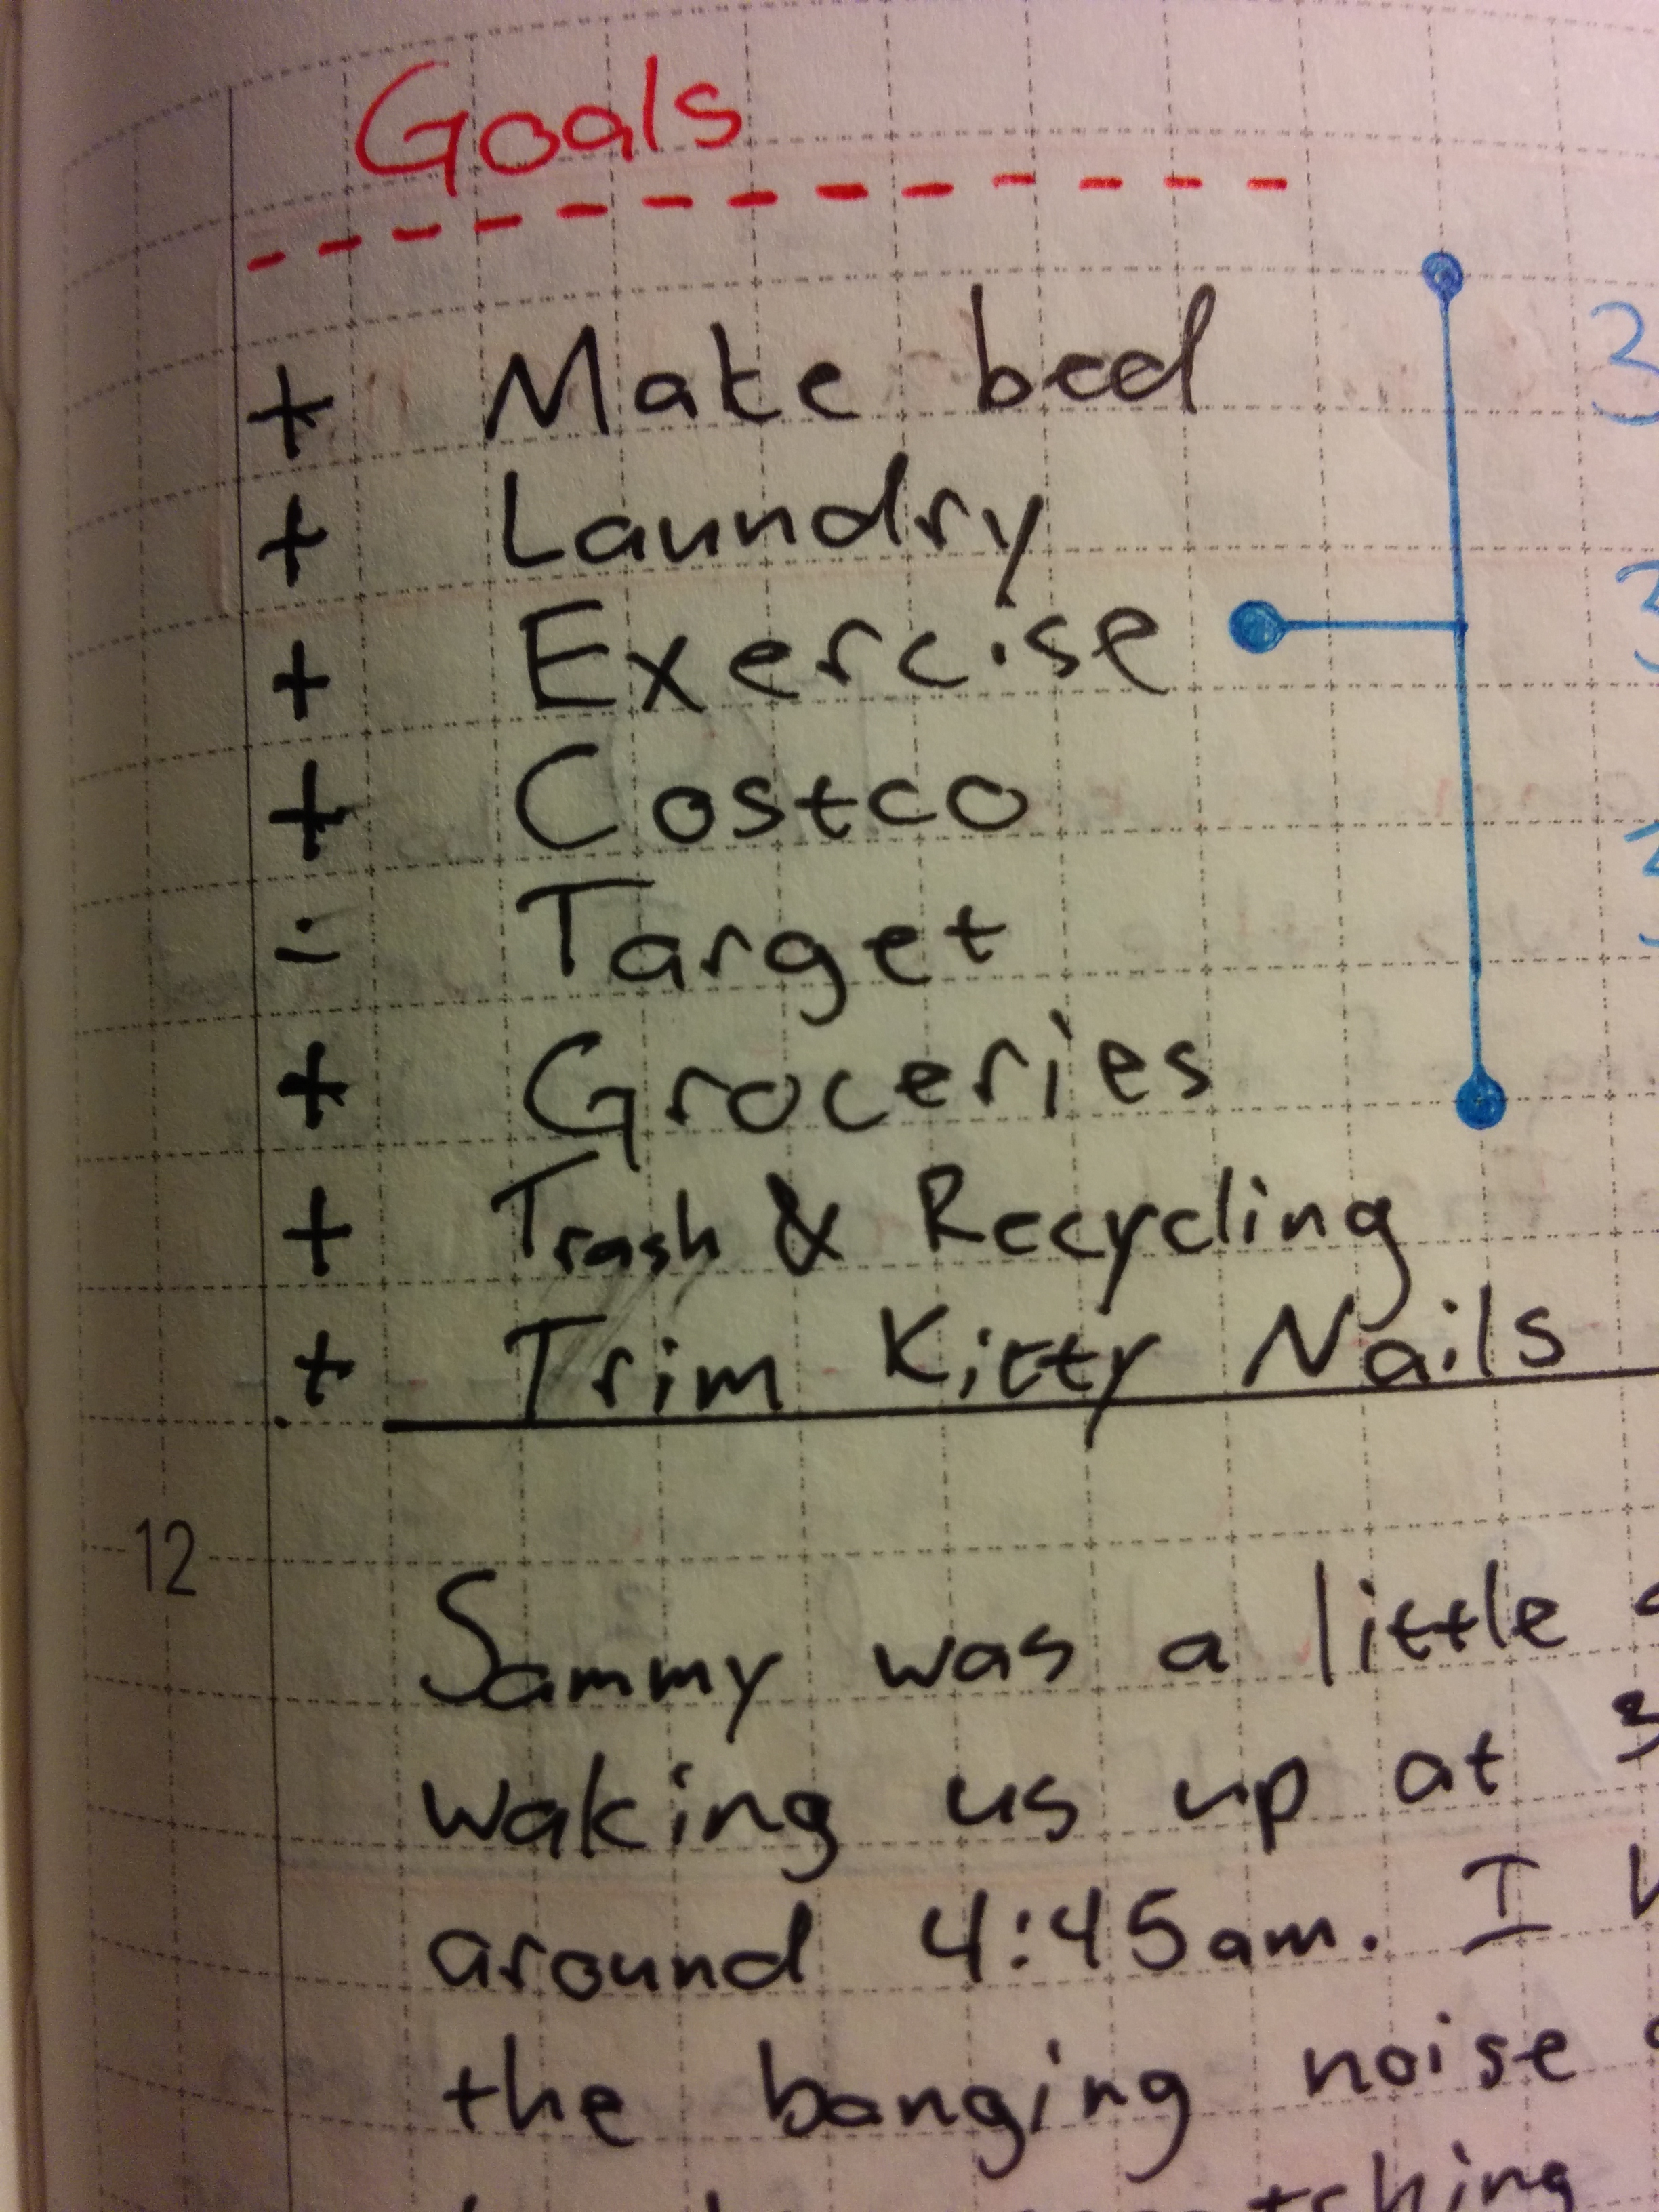 Goals
+ Make bed
+ Laundry
+ Exercise
+ Costco
÷ Target
+ Groceries
+ Trash & Recycling
+ Trim Kitty Nails
12
Sammy was a little
waking us up at 3
around 4:45am. I
the banging noise